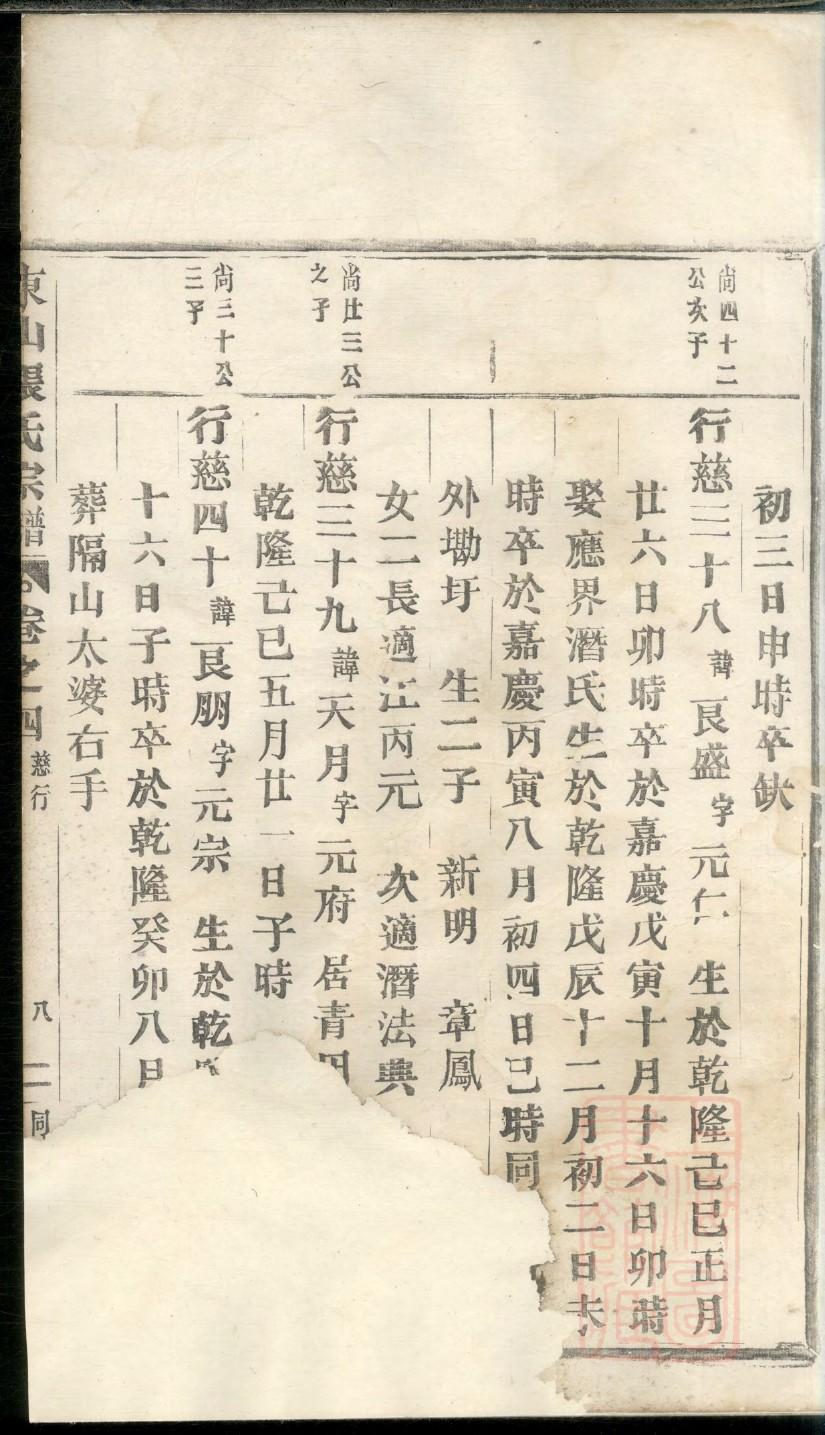 初三日申時卒缺
尚四十二
公次子
行慈三十八諱良盛字元仁 生於乾隆己巳正月
廿六日卯時卒於嘉慶戊寅十月十六日卯時
娶應界潛氏生於乾隆戊辰十二月初二日未
時卒於嘉慶丙寅八月初四日巳時同
外墈圩 生二子 新明 章鳳
女二長適江丙元 次適潛法典
尚廿三公
之子
行慈三十九諱天月字元府 居青田
乾隆己巳五月廿一日子時
尚三十公
三子
行慈四十諱良朋字元宗 生於乾
十六日子時卒於乾隆癸卯八日
葬隔山太婆右手
東山張氏宗譜 卷之四 慈行 八 二 同